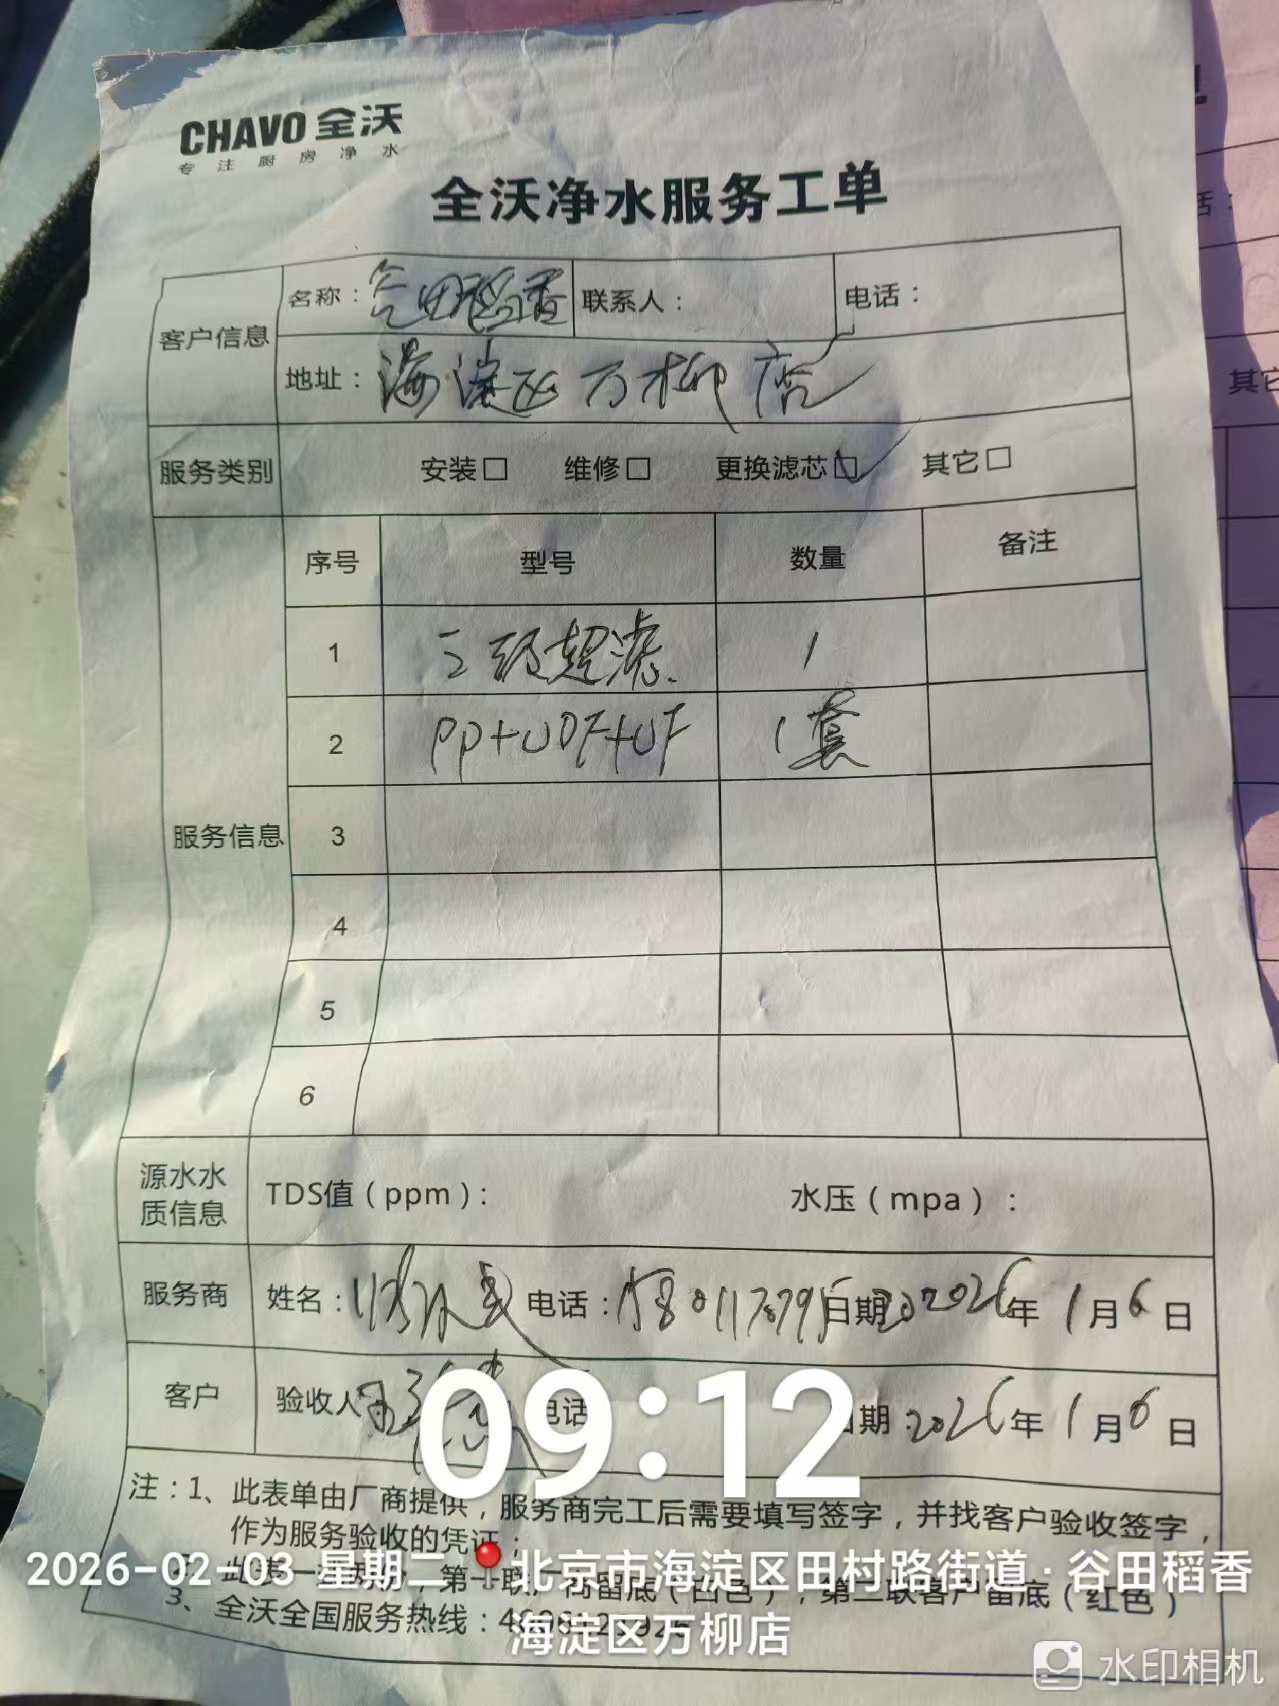 CHAVO 全沃
专注厨房净水
全沃净水服务工单
客户信息 名称：谷田稻香 联系人： 电话：
地址：海淀区万柳店
服务类别 安装□ 维修□ 更换滤芯☑ 其它□
服务信息 序号 型号 数量 备注
1 三级超滤 1
2 PP+UDF+UF 1套
3
4
5
6
源水水质信息 TDS值（ppm）： 水压（mpa）：
服务商 姓名： 电话： 日期 2026年1月6日
客户 验收人 电话 日期：2026年1月6日
09:12
注：1、此表单由厂商提供，服务商完工后需要填写签字，并找客户验收签字，
作为服务验收的凭证；
此表一式两份，第一联厂商留底（白色），第二联客户留底（红色）
3、全沃全国服务热线：
2026-02-03 星期二 北京市海淀区田村路街道·谷田稻香
海淀区万柳店
水印相机